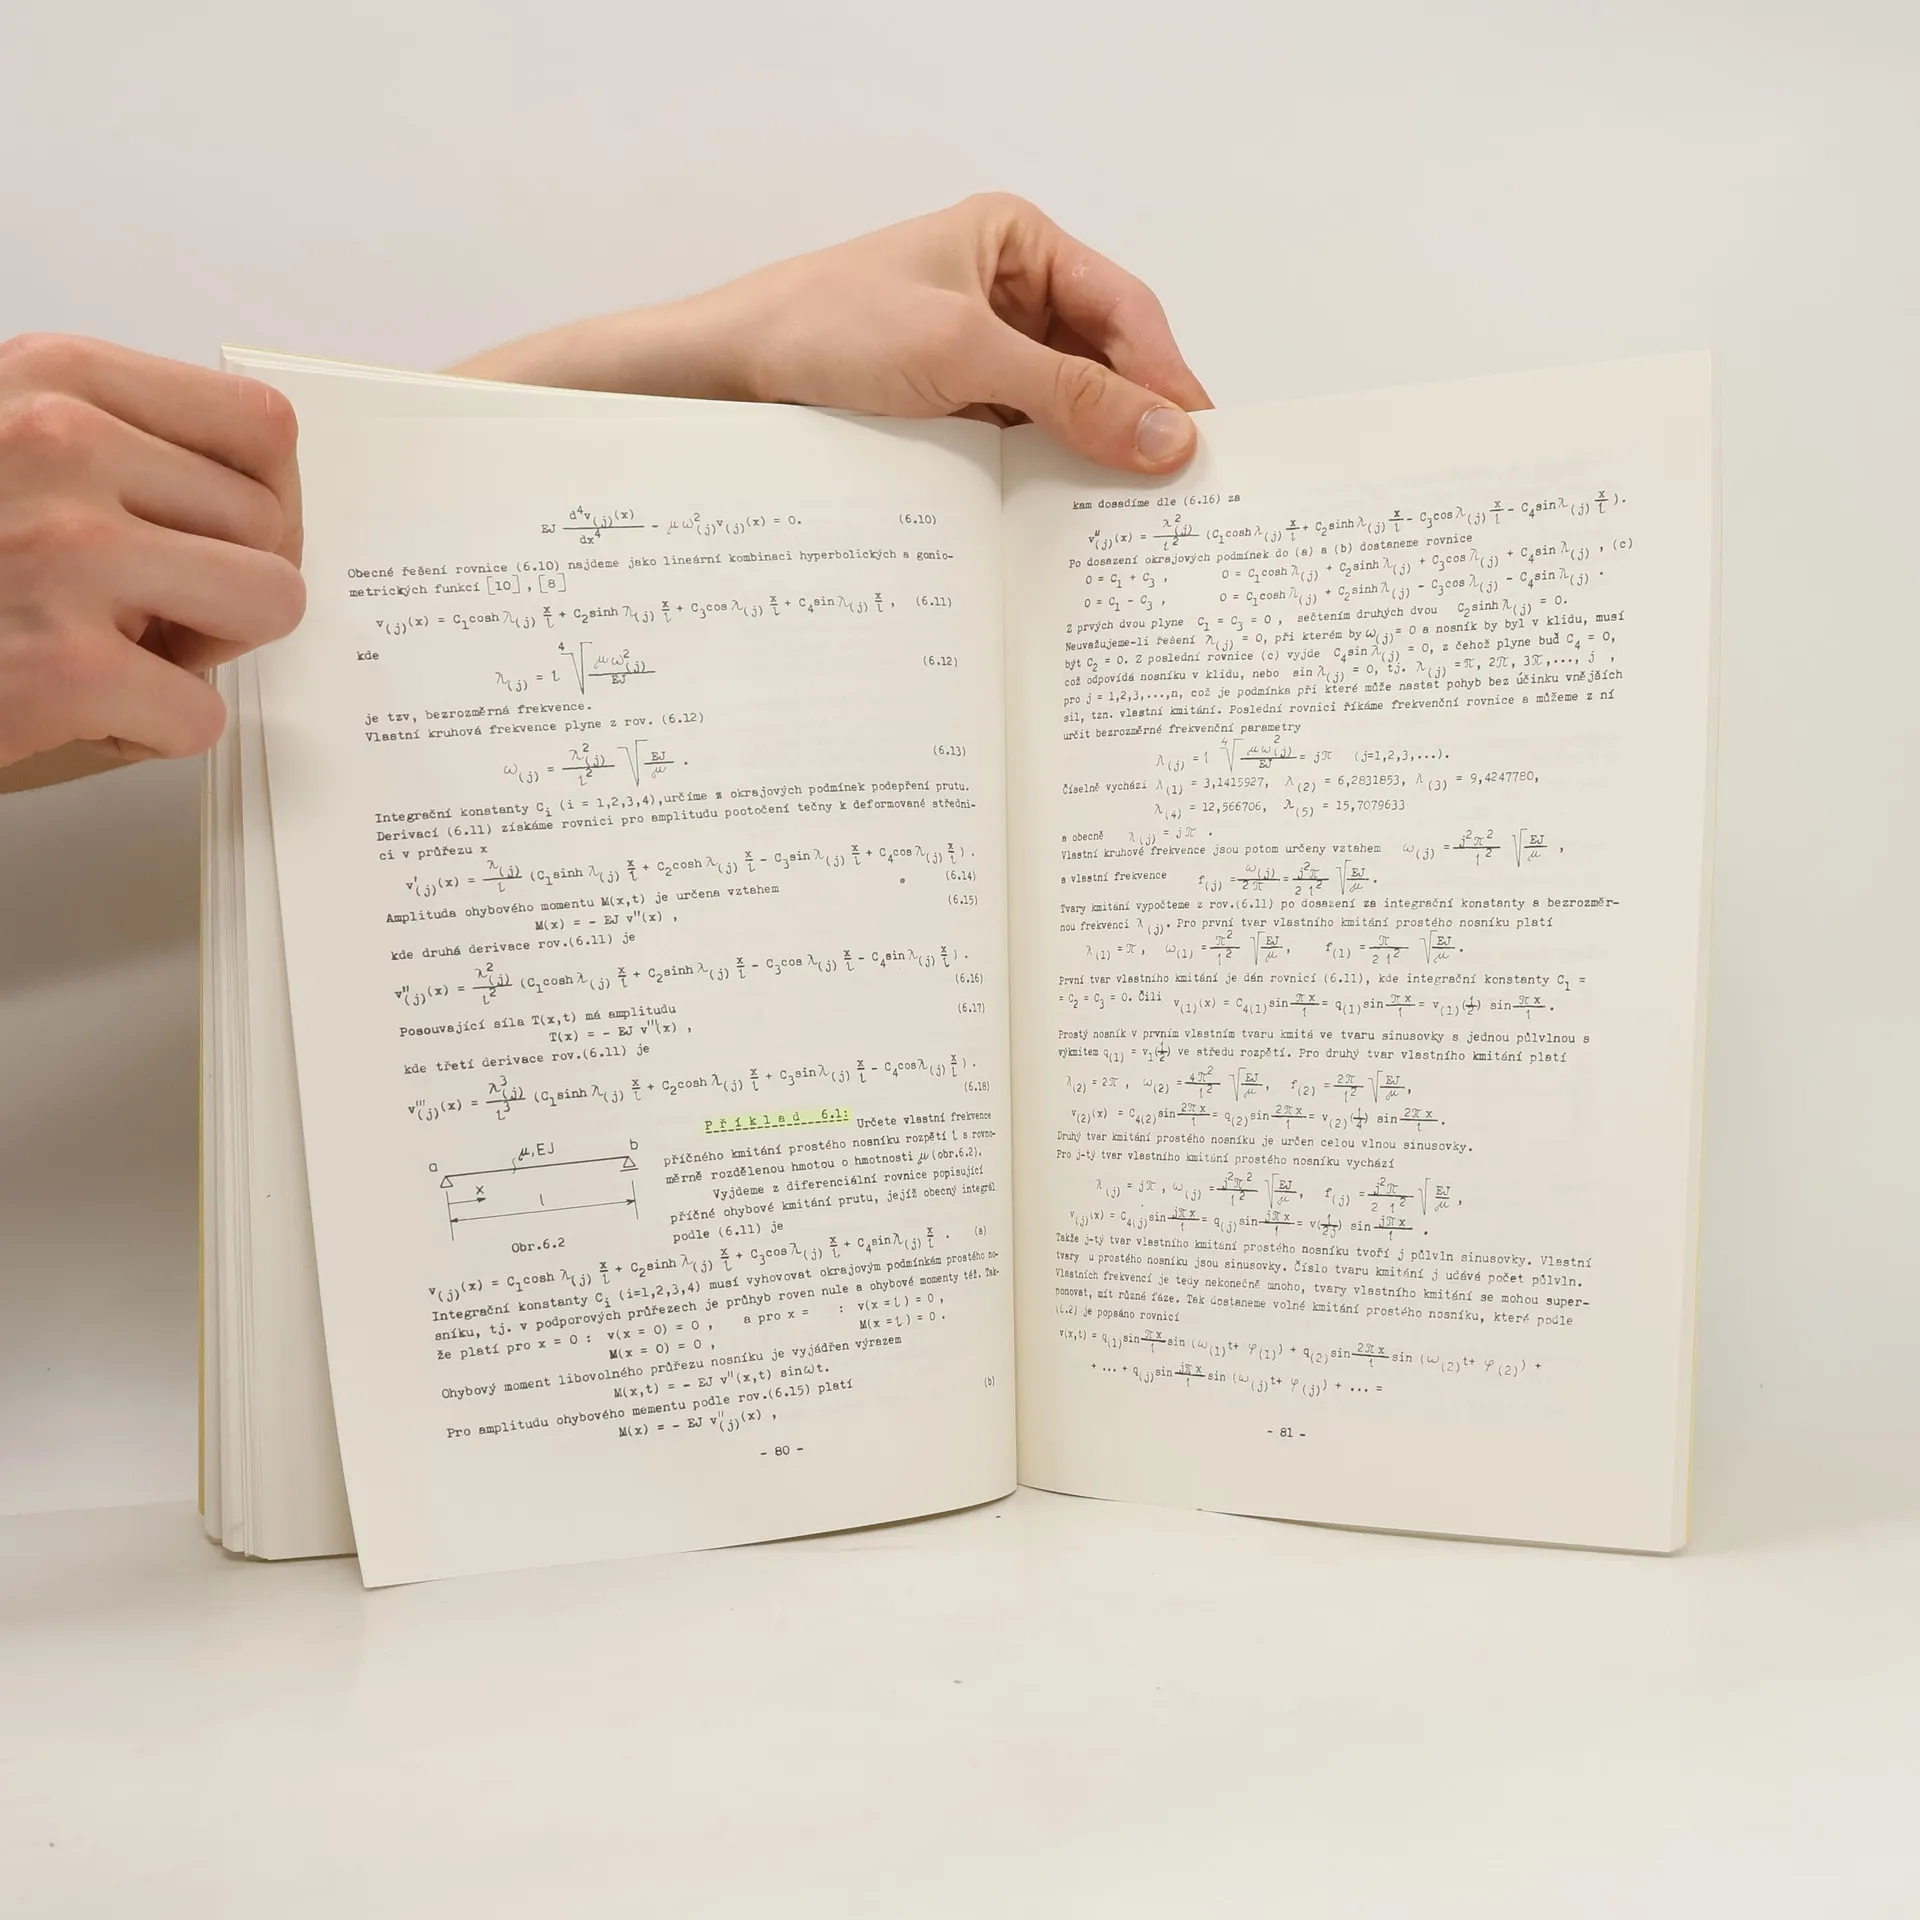 EJ d⁴v(j)(x)/dx⁴ - μω²(j)v(j)(x) = 0. (6.10)
Obecné řešení rovnice (6.10) najdeme jako lineární kombinaci hyperbolických a gonio-
metrických funkcí [10] , [8]
v(j)(x) = C₁cosh λ(j) x/l + C₂sinh λ(j) x/l + C₃cos λ(j) x/l + C₄sin λ(j) x/l , (6.11)
kde
λ(j) = l ⁴√(μω²(j)/EJ) (6.12)
je tzv, bezrozměrná frekvence.
Vlastní kruhová frekvence plyne z rov. (6.12)
ω(j) = λ²(j)/l² √(EJ/μ) . (6.13)
Integrační konstanty Cᵢ (i = 1,2,3,4),určíme z okrajových podmínek podepření prutu.
Derivací (6.11) získáme rovnici pro amplitudu pootočení tečny k deformované střední-
ci v průřezu x
v'(j)(x) = λ(j)/l (C₁sinh λ(j) x/l + C₂cosh λ(j) x/l - C₃sin λ(j) x/l + C₄cos λ(j) x/l ) .
(6.14)
Amplituda ohybového momentu M(x,t) je určena vztahem
M(x) = - EJ v"(x) , (6.15)
kde druhá derivace rov.(6.11) je
v"(j)(x) = λ²(j)/l² (C₁cosh λ(j) x/l + C₂sinh λ(j) x/l - C₃cos λ(j) x/l - C₄sin λ(j) x/l ) .
(6.16)
Posouvající síla T(x,t) má amplitudu
T(x) = - EJ v'''(x) , (6.17)
kde třetí derivace rov.(6.11) je
v'''(j)(x) = λ³(j)/l³ (C₁sinh λ(j) x/l + C₂cosh λ(j) x/l + C₃sin λ(j) x/l - C₄cos λ(j) x/l ) .
(6.18)
Příklad 6.1: Určete vlastní frekvence
příčného kmitání prostého nosníku rozpětí l s rovno-
měrně rozdělenou hmotou o hmotnosti μ (obr.6.2).
Vyjdeme z diferenciální rovnice popisující
příčné ohybové kmitání prutu, jejíž obecný integrál
podle (6.11) je
a μ,EJ b
x
l
Obr.6.2
v(j)(x) = C₁cosh λ(j) x/l + C₂sinh λ(j) x/l + C₃cos λ(j) x/l + C₄sin λ(j) x/l . (a)
Integrační konstanty Cᵢ (i=1,2,3,4) musí vyhovovat okrajovým podmínkám prostého no-
sníku, tj. v podporových průřezech je průhyb roven nule a ohybové momenty též. Tak-
že platí pro x = 0 : v(x = 0) = 0 , a pro x = : v(x = l) = 0 ,
M(x = 0) = 0 , M(x = l) = 0 .
Ohybový moment libovolného průřezu nosníku je vyjádřen výrazem
M(x,t) = - EJ v"(x,t) sinωt.
Pro amplitudu ohybového mementu podle rov.(6.15) platí (b)
M(x) = - EJ v"(j)(x) ,
- 80 -
kam dosadíme dle (6.16) za
v"(j)(x) = λ²(j)/l² (C₁cosh λ(j) x/l + C₂sinh λ(j) x/l - C₃cos λ(j) x/l - C₄sin λ(j) x/l ).
Po dosazení okrajových podmínek do (a) a (b) dostaneme rovnice
0 = C₁ + C₃ , 0 = C₁cosh λ(j) + C₂sinh λ(j) + C₃cos λ(j) + C₄sin λ(j) , (c)
0 = C₁ - C₃ , 0 = C₁cosh λ(j) + C₂sinh λ(j) - C₃cos λ(j) - C₄sin λ(j) .
Z prvých dvou plyne C₁ = C₃ = 0 , sečtením druhých dvou C₂sinh λ(j) = 0.
Neuvažujeme-li řešení λ(j) = 0, při kterém by ω(j) = 0 a nosník by byl v klidu, musí
být C₂ = 0. Z poslední rovnice (c) vyjde C₄sin λ(j) = 0, z čehož plyne buď C₄ = 0,
což odpovídá nosníku v klidu, nebo sin λ(j) = 0, tj. λ(j) = π, 2π, 3π,..., j ,
pro j = 1,2,3,...,n, což je podmínka při které může nastat pohyb bez účinku vnějších
sil, tzn. vlastní kmitání. Poslední rovnici říkáme frekvenční rovnice a můžeme z ní
určit bezrozměrné frekvenční parametry
λ(j) = l ⁴√(μω²(j)/EJ) = jπ (j=1,2,3,...).
Číselně vychází λ(1) = 3,1415927, λ(2) = 6,2831853, λ(3) = 9,4247780,
λ(4) = 12,566706, λ(5) = 15,7079633
a obecně λ(j) = jπ .
Vlastní kruhové frekvence jsou potom určeny vztahem ω(j) = j²π²/l² √(EJ/μ) ,
a vlastní frekvence f(j) = ω(j)/2π = j²π/2l² √(EJ/μ) .
Tvary kmitání vypočteme z rov.(6.11) po dosazení za integrační konstanty a bezrozměr-
nou frekvenci λ(j). Pro první tvar vlastního kmitání prostého nosníku platí
λ(1) = π , ω(1) = π²/l² √(EJ/μ) , f(1) = π/2l² √(EJ/μ) .
První tvar vlastního kmitání je dán rovnicí (6.11), kde integrační konstanty C₁ =
= C₂ = C₃ = 0. Čili v(1)(x) = C₄(1)sin πx/l = q(1)sin πx/l = v(1)(l/2) sin πx/l .
Prostý nosník v prvním vlastním tvaru kmitá ve tvaru sinusovky s jednou půlvlnou s
výkmitem q(1) = v₁(l/2) ve středu rozpětí. Pro druhý tvar vlastního kmitání platí
λ(2) = 2π , ω(2) = 4π²/l² √(EJ/μ) , f(2) = 2π/l² √(EJ/μ) ,
v(2)(x) = C₄(2)sin 2πx/l = q(2)sin 2πx/l = v(2)(l/4) sin 2πx/l .
Druhý tvar kmitání prostého nosníku je určen celou vlnou sinusovky.
Pro j-tý tvar vlastního kmitání prostého nosníku vychází
λ(j) = jπ , ω(j) = j²π²/l² √(EJ/μ) , f(j) = j²π/2l² √(EJ/μ) ,
v(j)(x) = C₄(j)sin jπx/l = q(j)sin jπx/l = v(l/2j) sin jπx/l .
Takže j-tý tvar vlastního kmitání prostého nosníku tvoří j půlvln sinusovky. Vlastní
tvary u prostého nosníku jsou sinusovky. Číslo tvaru kmitání j udává počet půlvln.
Vlastních frekvencí je tedy nekonečně mnoho, tvary vlastního kmitání se mohou super-
ponovat, mít různé fáze. Tak dostaneme volné kmitání prostého nosníku, které podle
(6.2) je popsáno rovnicí
v(x,t) = q(1)sin πx/l sin (ω(1)t+ φ(1)) + q(2)sin 2πx/l sin (ω(2)t+ φ(2)) +
+ ... + q(j)sin jπx/l sin (ω(j)t+ φ(j)) + ... =
- 81 -